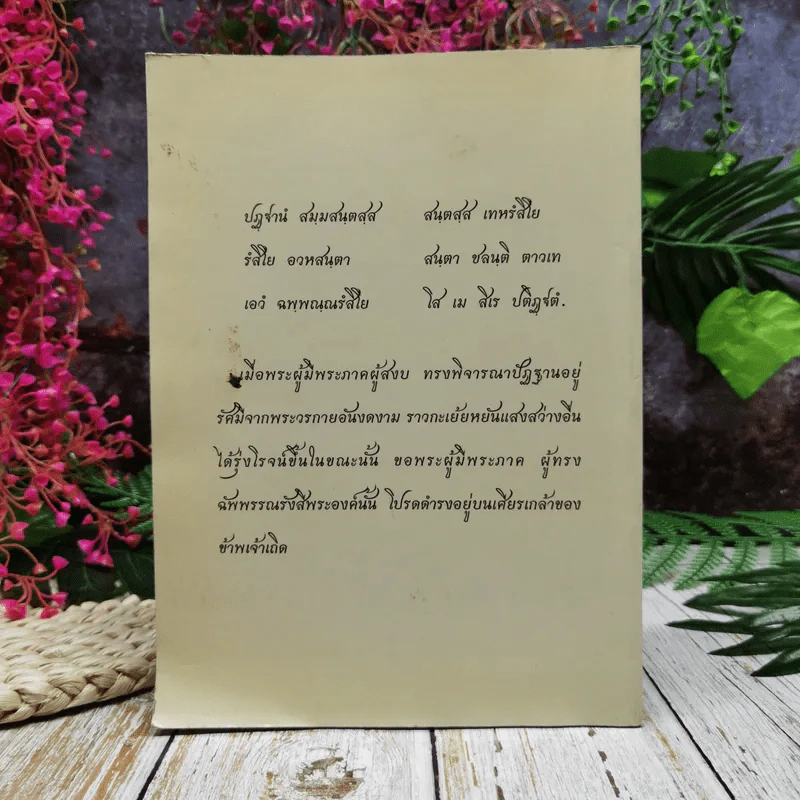 ปฏฺฐานํ สมฺมสนฺตสฺส สนฺตสฺส เทหรํสิโย
รํสิโย อวหสนฺตา สนฺตา ชลนฺติ ตาวเท
เอวํ ฉพฺพณฺณรํสิโย โส เม สิเร ปติฏฺฐตํ.
เมื่อพระผู้มีพระภาคผู้สงบ ทรงพิจารณาปัฏฐานอยู่
รัศมีจากพระวรกายอันงดงาม ราวกะเย้ยหยันแสงสว่างอื่น
ได้รุ่งโรจน์ขึ้นในขณะนั้น ขอพระผู้มีพระภาค ผู้ทรง
ฉัพพรรณรังสีพระองค์นั้น โปรดดำรงอยู่บนเศียรเกล้าของ
ข้าพเจ้าเถิด